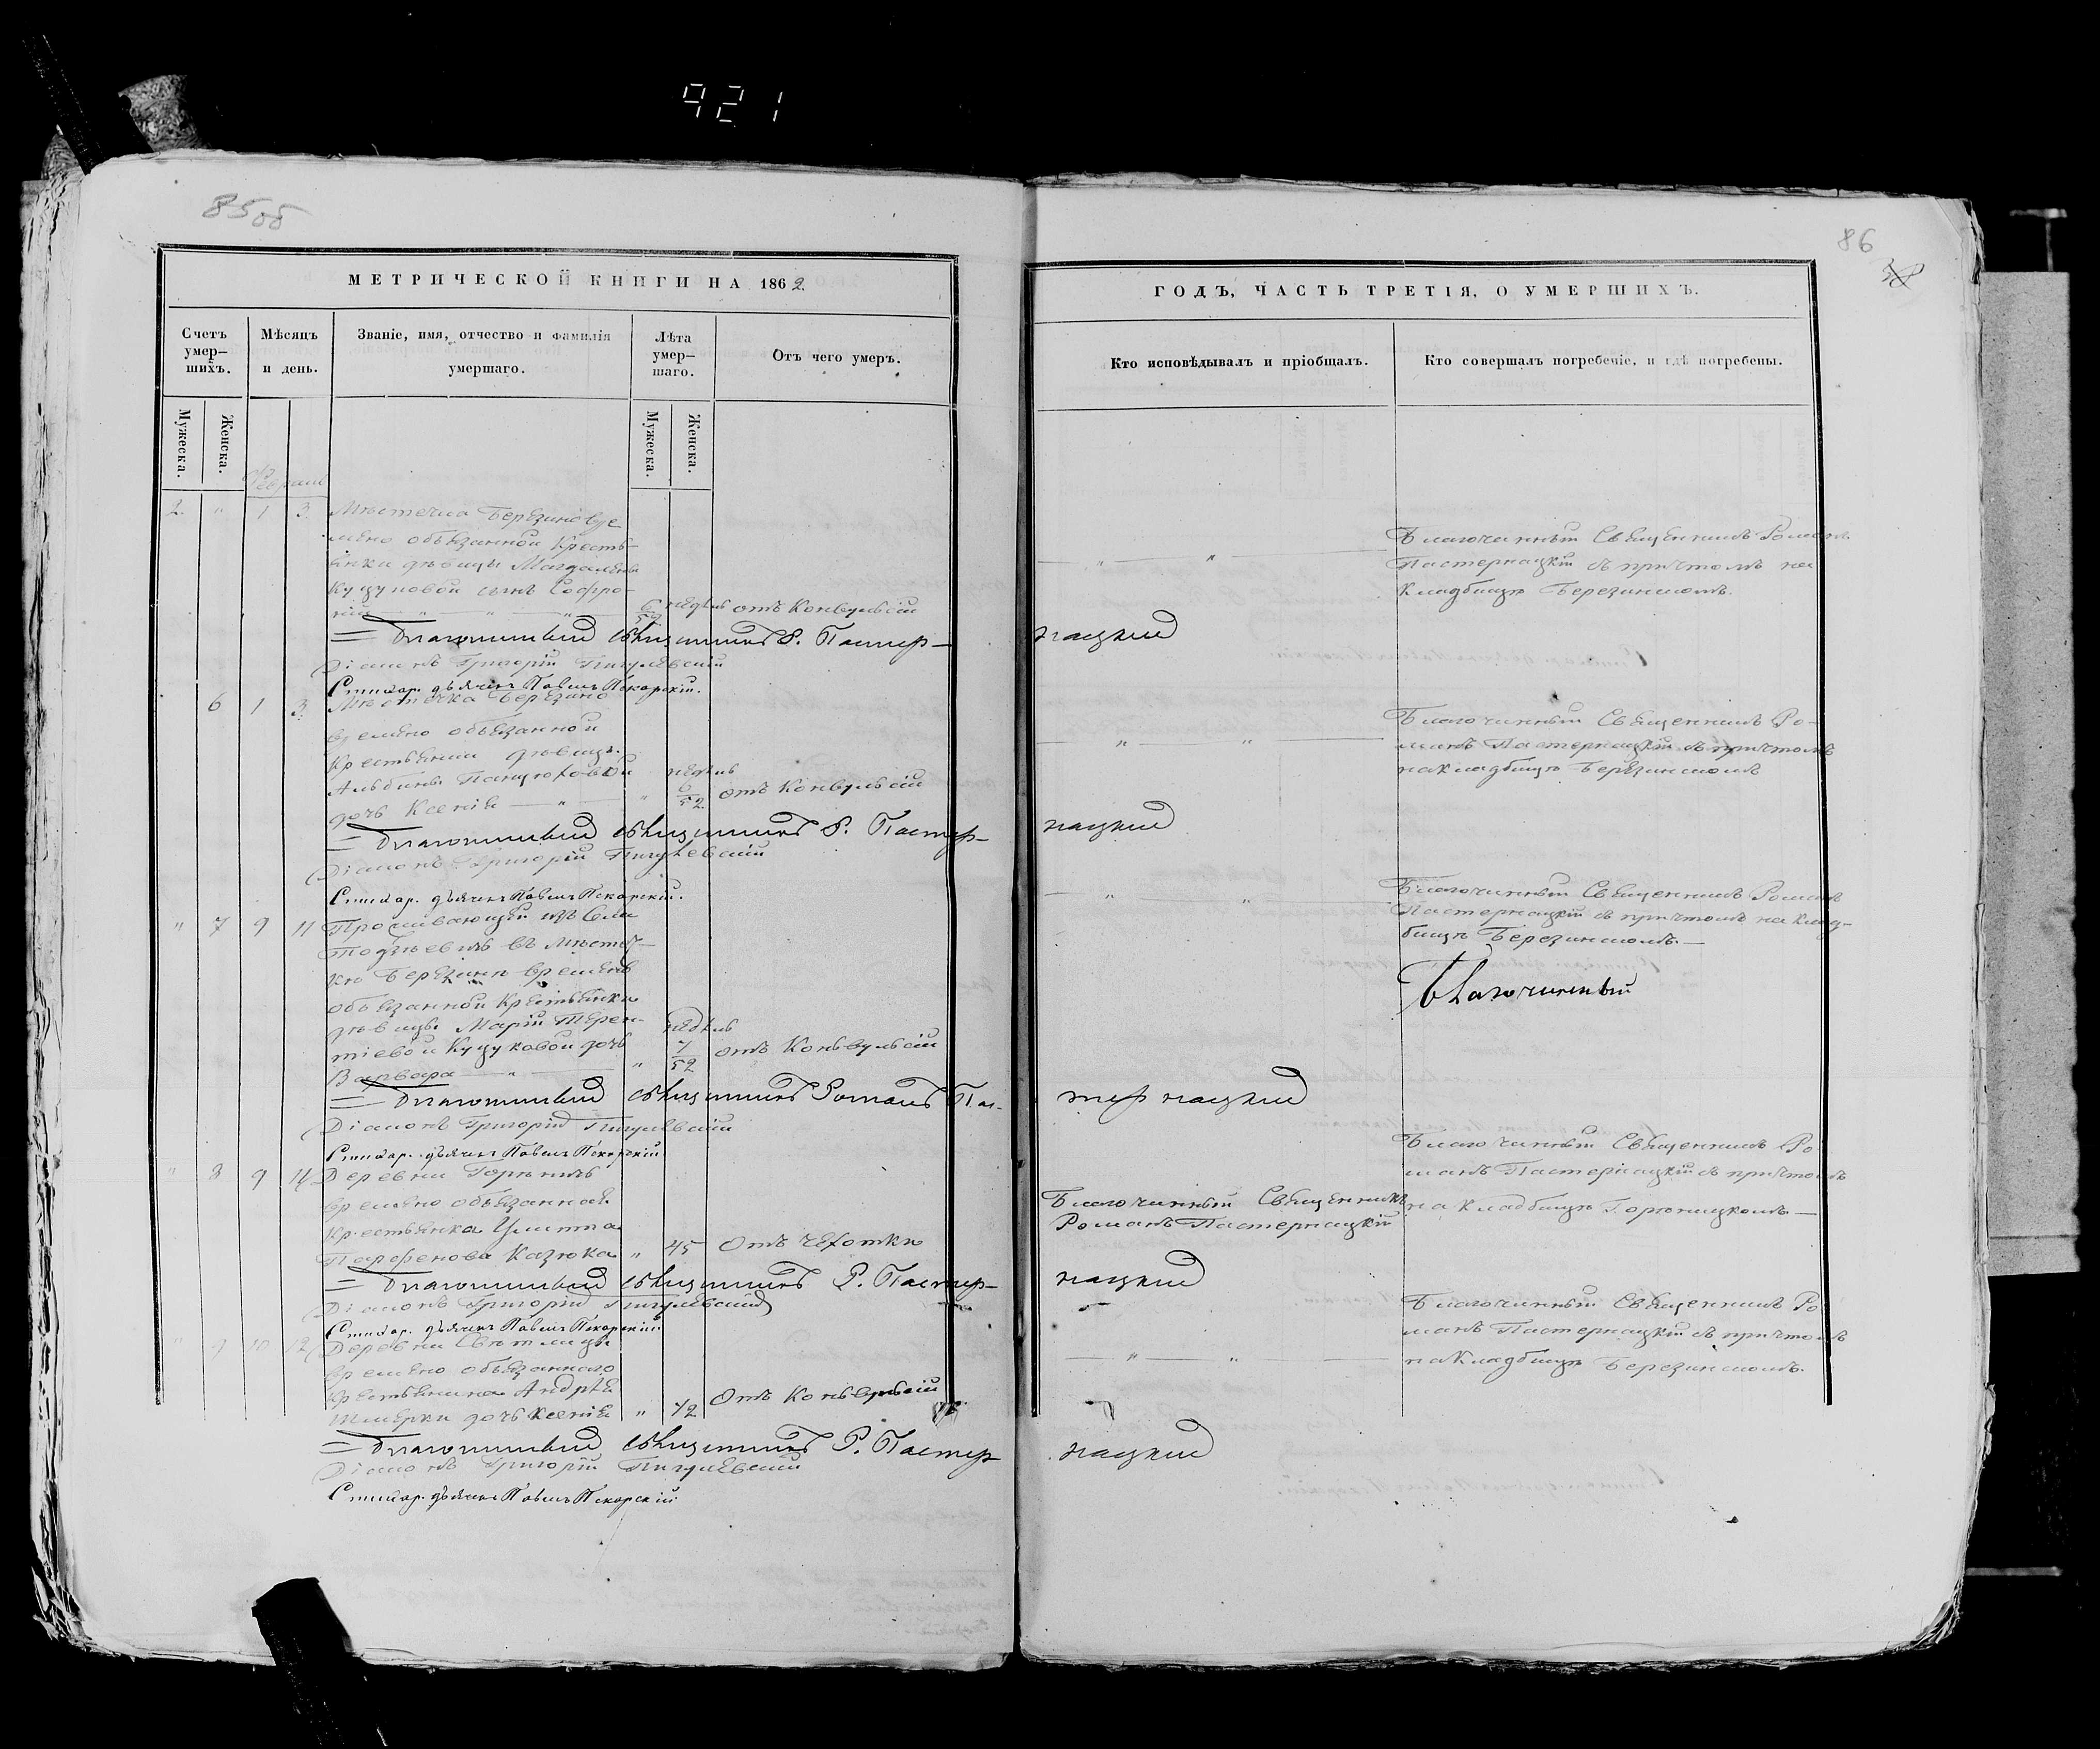 921
85об
МЕТРИЧЕСКОЙ КНИГИ НА 1862
Счетъ умер- шихъ.
Мѣсяцъ и день.
Званіе, имя, отчество и фамилія умершаго.
Лѣта умер- шаго.
Отъ чего умеръ.
Мужеска.
Женска.
Мужеска.
Женска.
Февраль
2. " 1 3. Мѣстечка Березино вре
менно обязанной Кресть-
янки дѣвицы Магдалены
Куцуновой сынъ Софро-
ній " " " 6/52 недѣль отъ Конвульсій
Благочинный Священникъ Р. Пастер-
Діаконъ Григорій Пигулевскій
Стихар. дьячекъ Павелъ Пекарскій.
6 1 3. Мѣстечка Березино
временно обязанной
Крестьянки дѣвицы
Альбины
дочь Ксенія " " недѣль 6/52 отъ Конвульсій
Благочинный Священникъ Р. Пастер-
Діаконъ Григорій Пигулевскій
Стихар. дьячекъ Павелъ Пекарскій.
" 7 9 11 Проживающей изъ
въ мѣстеч-
кѣ Березинѣ временно
обязанной Крестьянки
дѣвицы Маріи Терен-
тіевой Куцуковой дочь
Варвара " " недѣль 7/52 отъ Конвульсій
Благочинный Священникъ Романъ Пас-
Діаконъ Григорій Пигулевскій
Стихар. дьячекъ Павелъ Пекарскій
" 8 9 Деревни
временно обязанная
крестьянка
Парфенова Казюка " 45 Отъ чехотки
Благочинный Священникъ Р. Пастер-
Діаконъ Григорій Пигулевскій
Стихар. дьячекъ Павелъ Пекарскій
" 9 10 12 Деревни Свѣтлицы
временно обязаннаго
крестьянина Андрея
дочь Ксенія " 1/2 Отъ Конвульсій
Благочинный Священникъ Р. Пастер
Діаконъ Григорій Пигулевскій
Стихар. дьячекъ Павелъ Пекарскій
86
ГОДЪ, ЧАСТЬ ТРЕТІЯ, О УМЕРШИХЪ.
Кто исповѣдывалъ и пріобщалъ.
Кто совершалъ погребеніе, и гдѣ погребены.
Благочинный Священникъ Романъ
Пастернацкій съ причтомъ на
Кладбищѣ Березинскомъ.
нацкій
Благочинный Священникъ Ро-
манъ Пастернацкій съ причтомъ
на Кладбищѣ Березинскомъ
нацкій
Благочинный Священникъ Романъ
Пастернацкій съ причтомъ на клад-
бищѣ Березинскомъ.
Благочинный
тернацкій
Благочинный Священникъ
Романъ Пастернацкій
Благочинный Священникъ Ро
манъ Пастернацкій съ причтомъ
на Кладбищѣ Горѣницкомъ
нацкій
Благочинный Священникъ Ро
манъ Пастернацкій съ причтомъ
на Кладбищѣ Березинскомъ.
нацкій